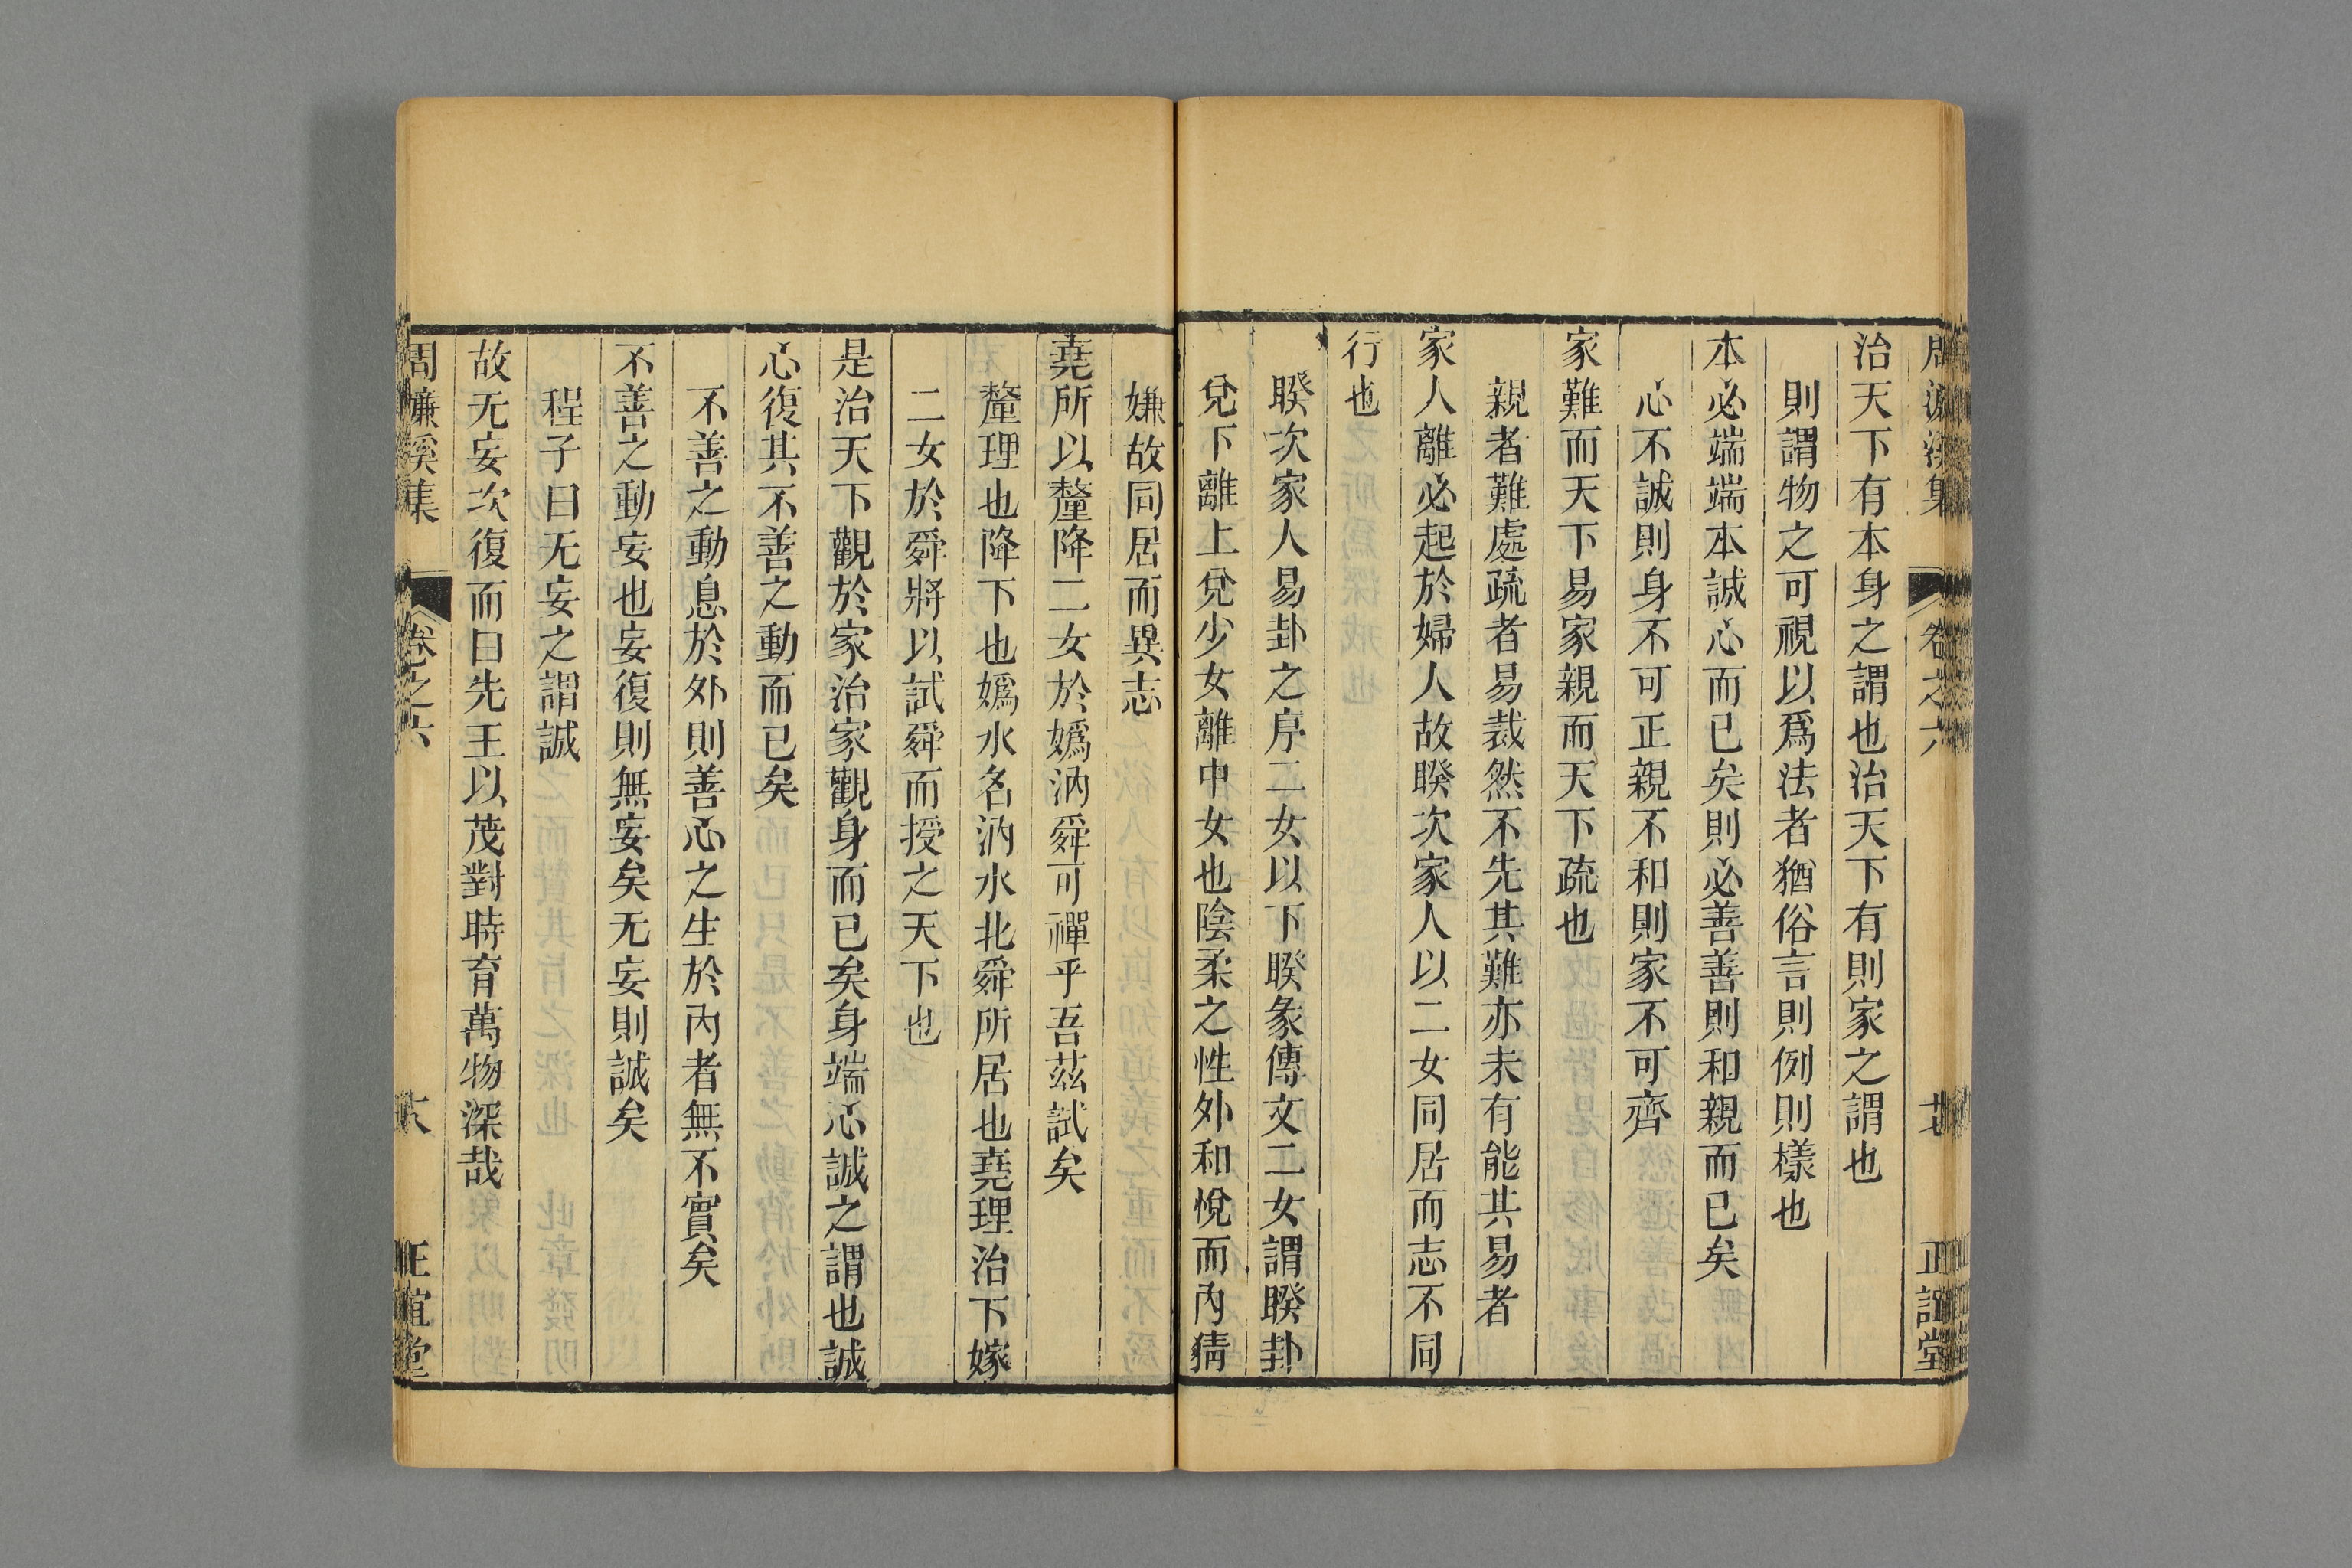 治天下有本身之謂也治天下有則家之謂也
則謂物之可視以爲法者猶俗言則例則樣也
本必端端本誠心而已矣則必善善則和親而已矣
心不誠則身不可正親不和則家不可齊
家難而天下易家親而天下疏也
親者難處疏者易裁然不先其難亦未有能其易者
家人離必起於婦人故睽次家人以二女同居而志不同
行也
睽次家人易卦之序二女以下睽彖傳文二女謂睽卦
兌下離上兌少女離中女也陰柔之性外和悅而內猜
嫌故同居而異志
堯所以釐降二女於嬀汭舜可禪乎吾茲試矣
釐理也降下也嬀水名汭水北舜所居也堯理治下嫁
二女於舜將以試舜而授之天下也
是治天下觀於家治家觀身而已矣身端心誠之謂也誠
心復其不善之動而已矣
不善之動息於外則善心之生於內者無不實矣
不善之動妄也妄復則無妄矣无妄則誠矣
程子曰无妄之謂誠
故无妄次復而曰先王以茂對時育萬物深哉
周濂溪集 卷之六